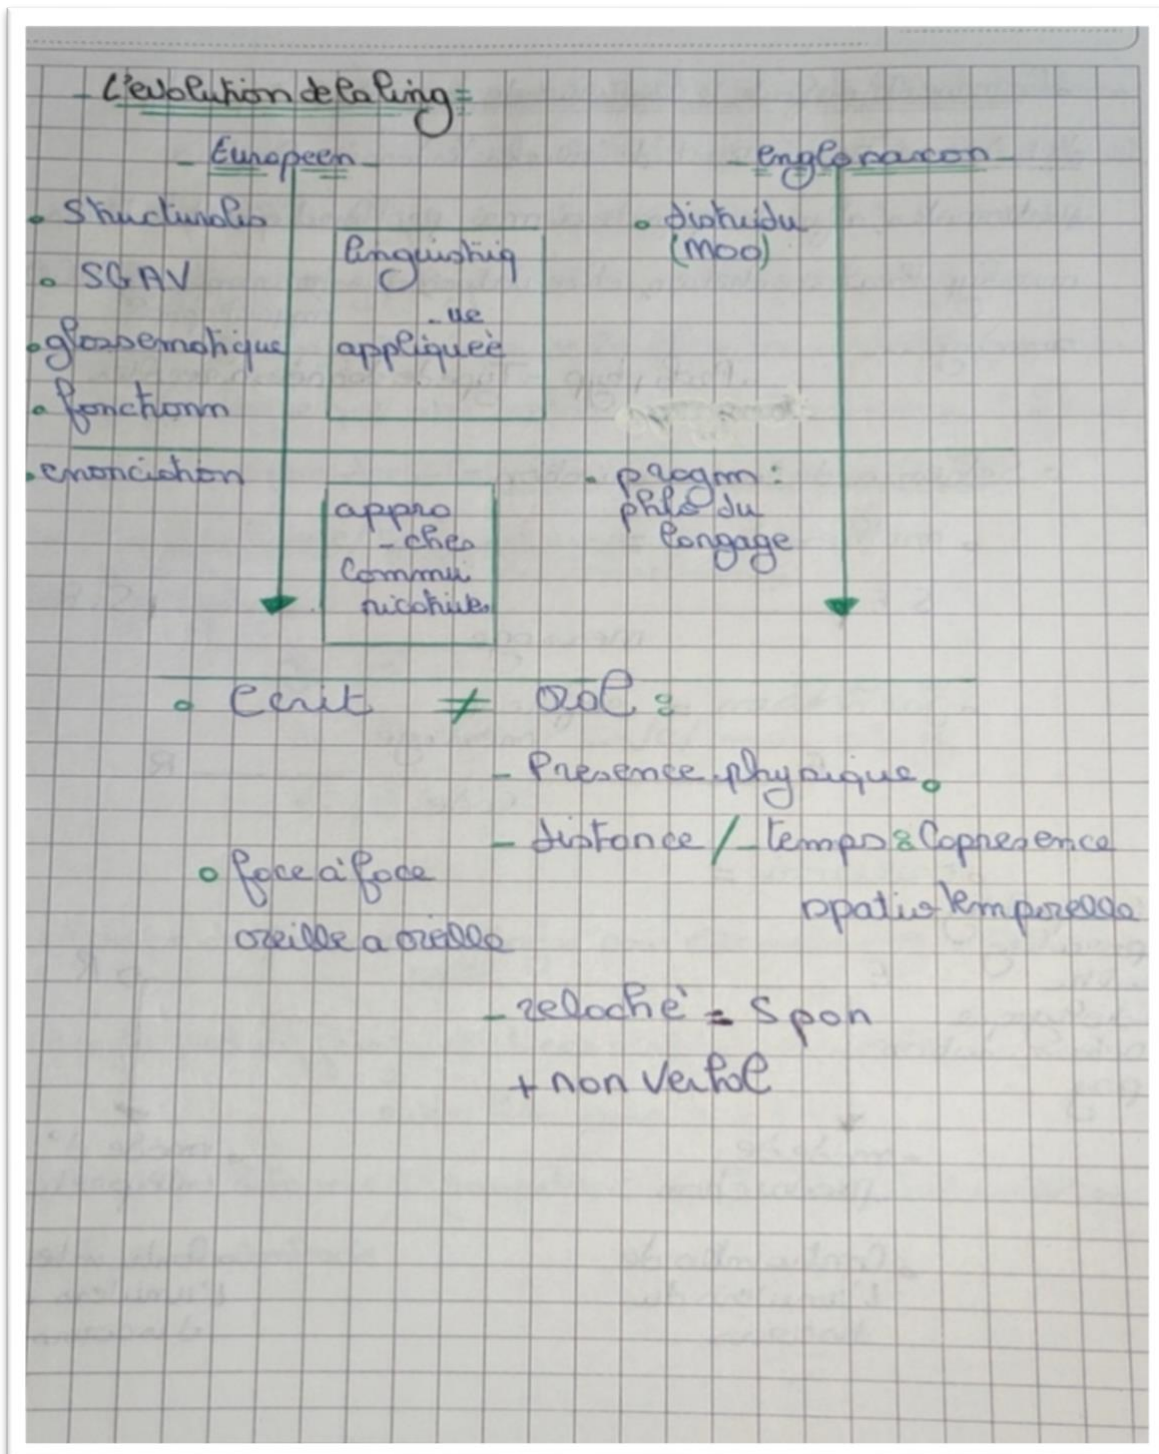 - L'evolution de la ling =
- Europeen -
- englosaxon -
• Structuralis
• SGAV
• glossematique
• fonctionn
linguistiq
-ue
appliqueé
• distribu
(MOO)
• enonciation
appro
-ches
Commu
nicatives
• pragm :
philo du
langage
• Ecrit ≠ oral :
- Presence physique.
- distance / - temps : Copresence
spatio temporelle
• face à face
oreille a oreille
- relaché = Spon
+ non verbal